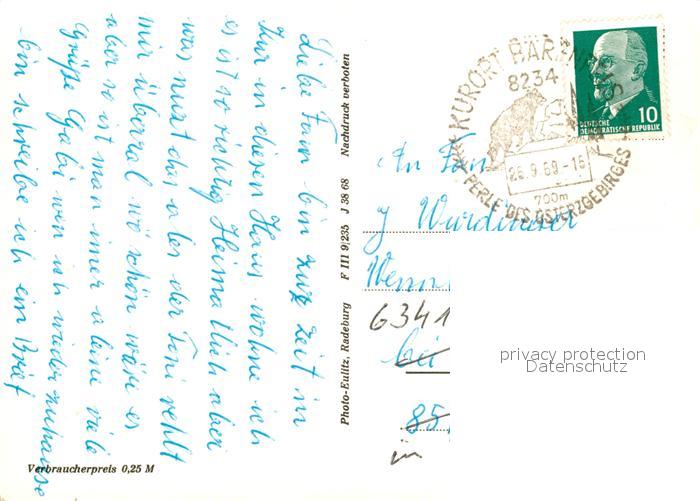 Liebe Fam bin zurz Zeit in
Kur in diesen Haus wohne ich
es ist so richtig Heimatlich aber
was nutzt das a les der Toni vehlt
mir überal wo schön wäre es
aber so ist man imer aleine viele
Grüße Gabi wen ich wieder zuhause
bin schreibe ich ein Brief
Verbraucherpreis 0,25 M
Photo-Eulitz, Radeburg F III 9/235 J 38 68 Nachdruck verboten
KURORT BÄRENFELS
8234
26.9.69.-16
700m
PERLE DES OSTERZGEBIRGES
10
DEUTSCHE
DEMOKRATISCHE REPUBLIK
An Fam
J Wurdinger
6341
bei
85
in
privacy protection
Datenschutz